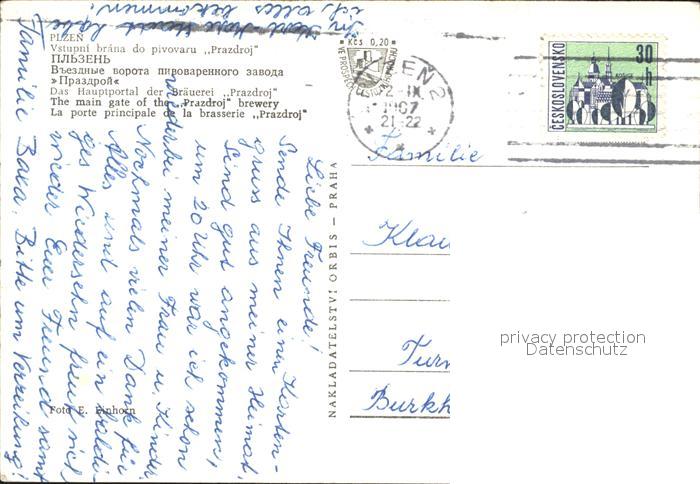 PLZEŇ
Vstupní brána do pivovaru „Prazdroj"
ПЛЬЗЕНЬ
Въездные ворота пивоваренного завода
»Праздрой«
Das Hauptportal der Bräuerei „Prazdroj"
The main gate of the „Prazdroj" brewery
La porte principale de la brasserie „Prazdroj"
Kčs 0,20
PLZEŇ 2
-IX
1967
21-22
ČESKOSLOVENSKO
30 h
privacy protection
Datenschutz
Familie
Klau
Turn
Burkh
NAKLADATELSTVÍ ORBIS – PRAHA
Liebe Freunde!
Sende Ihnen einen Karten-
gruss aus meiner Heimat.
Sind gut angekommen,
um 20 Uhr war ich schon
wieder bei meiner Frau u. Kinder.
Nochmals vielen Dank für
Alles und auf ein baldi-
ges Wiedersehn freut sich
wieder Euer Freund samt
Familie Bava. Bitte um Verzeihung!
ich alles bekommen.
Foto E. Einhorn